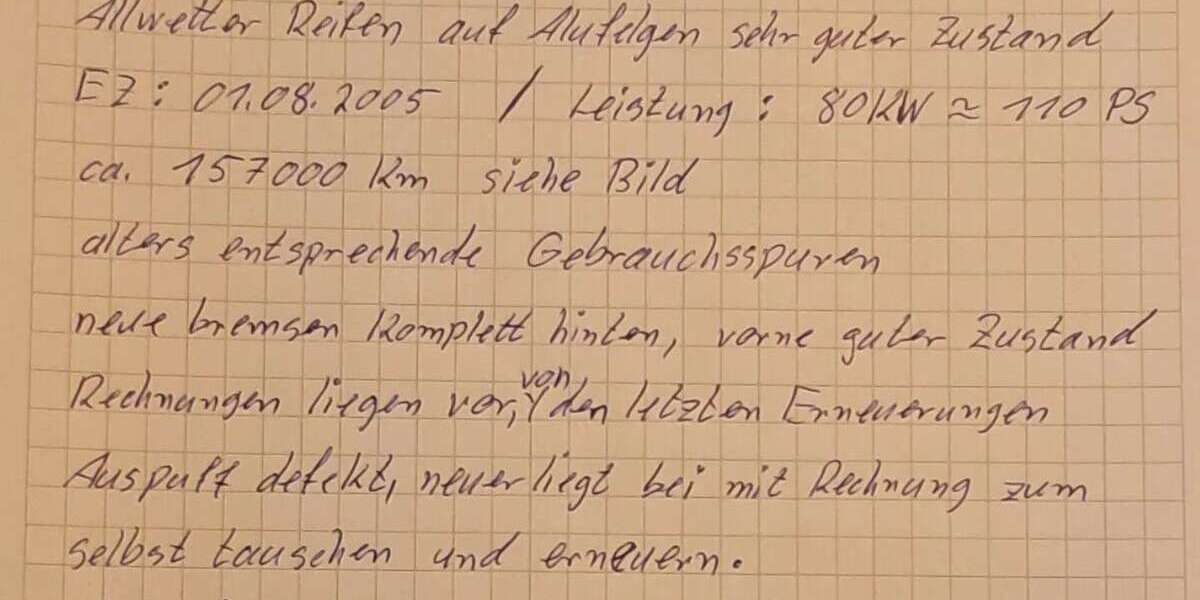 Allwetter Reifen auf Alufelgen sehr guter Zustand
EZ: 01.08.2005 / Leistung: 80KW ≈ 110 PS
ca. 157000 Km siehe Bild
alters entsprechende Gebrauchsspuren
neue bremsen Komplett hinten, vorne guter Zustand
Rechnungen liegen vor, von den letzten Erneuerungen
Auspuff defekt, neuer liegt bei mit Rechnung zum
selbst tauschen und erneuern.